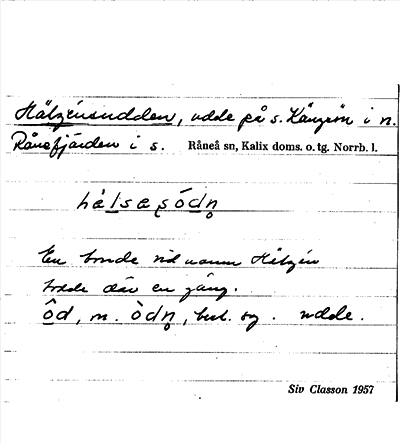 Hälzénsudden, udde på s. Långön i n.
Rånefjärden i s. Råneå sn, Kalix doms. o. tg. Norrb. l.
En bonde vid namn Hälzén
bodde där en gång.
ôd, m. òdn̥, best. sg. udde.
Siv Classon 1957